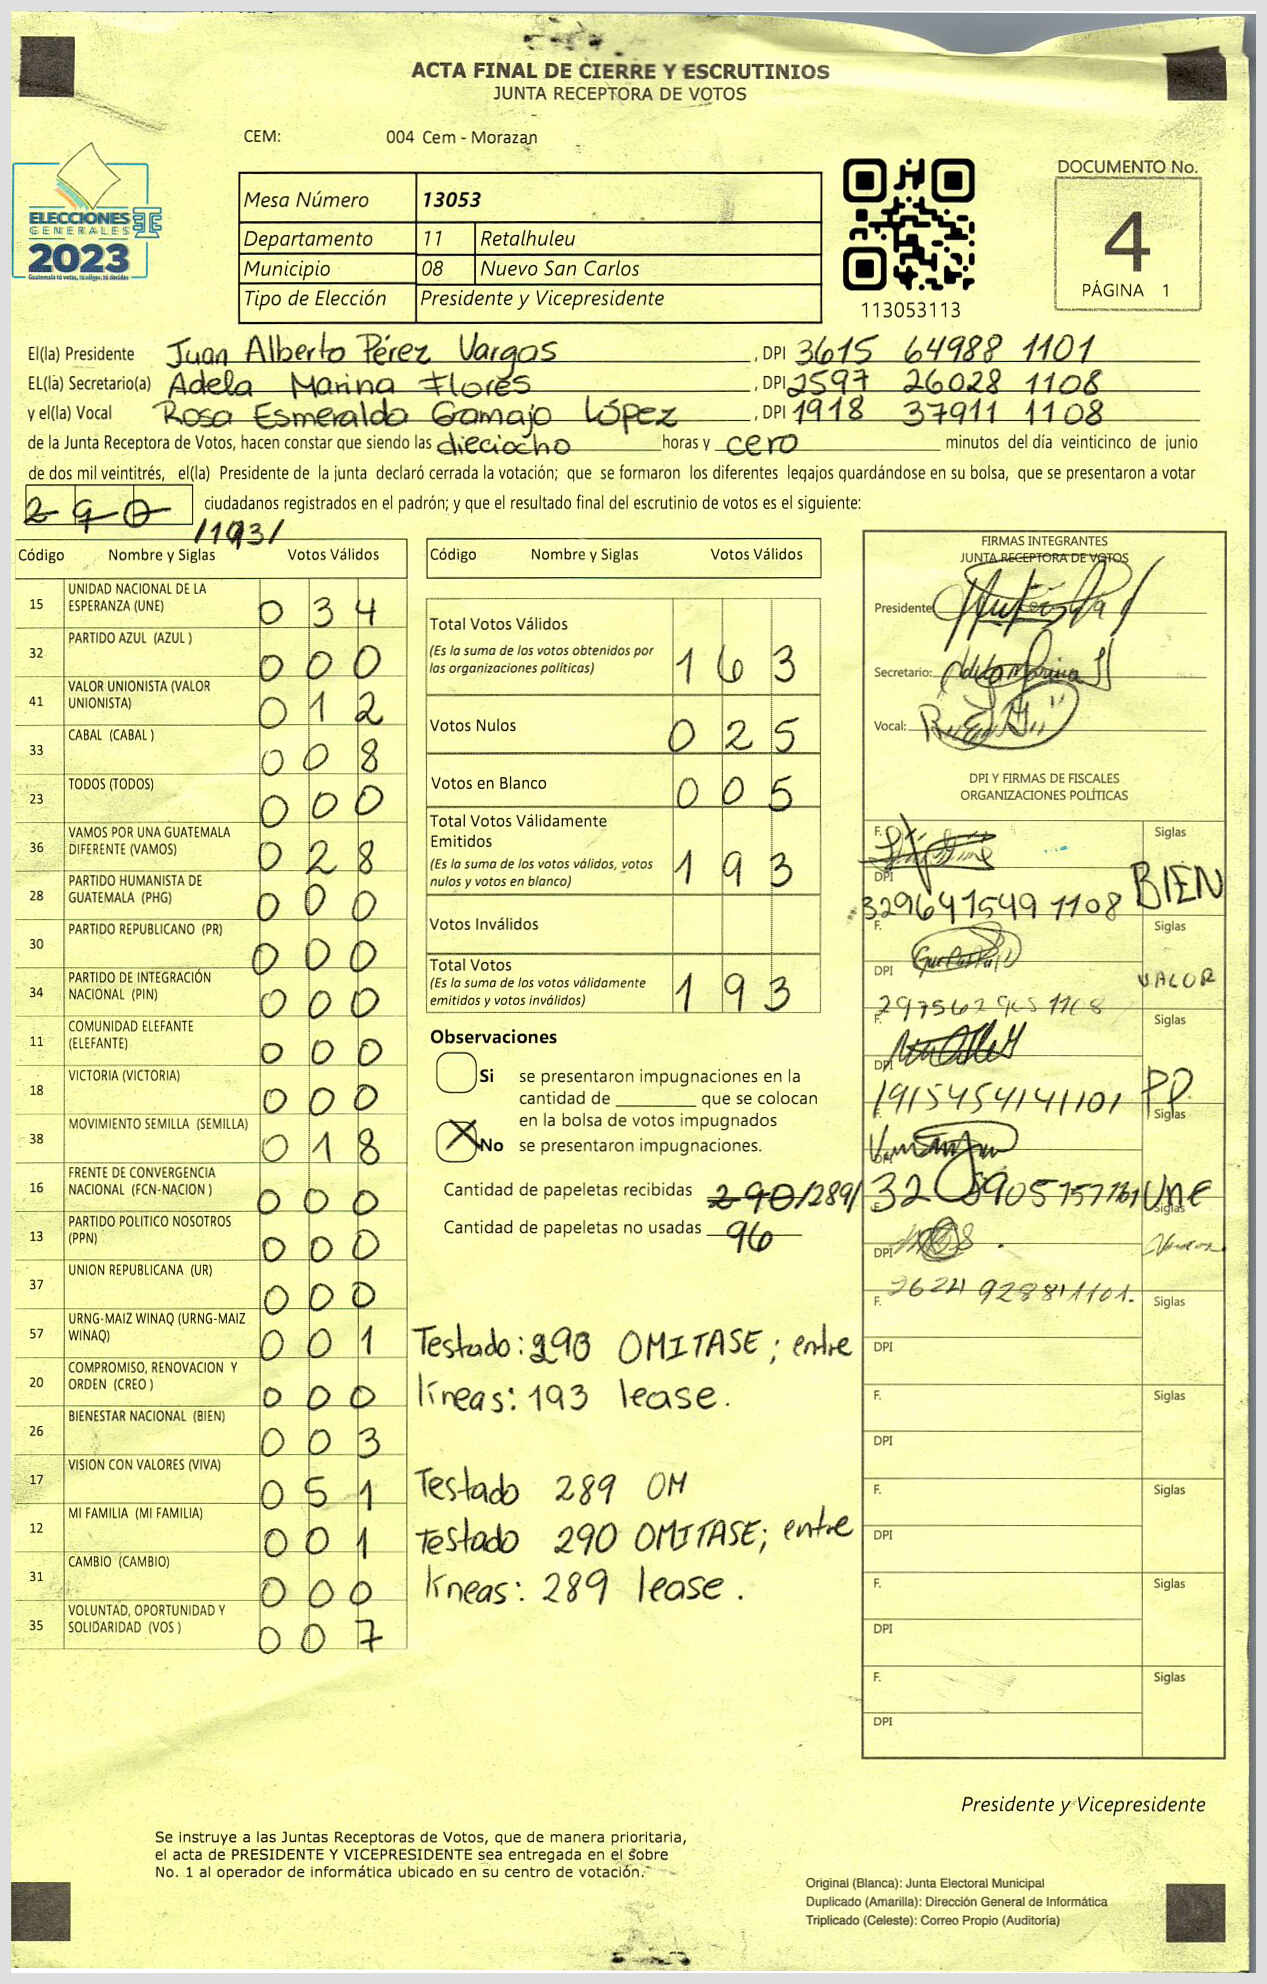 ACTA FINAL DE CIERRE Y ESCRUTINIOS
JUNTA RECEPTORA DE VOTOS
CEM: 004 Cem - Morazan
ELECCIONES
GENERALES
2023
Guatemala tú votas, tú eliges, tú decides
Mesa Número 13053
Departamento 11 Retalhuleu
Municipio 08 Nuevo San Carlos
Tipo de Elección Presidente y Vicepresidente
113053113
DOCUMENTO No.
4
PÁGINA 1
El(la) Presidente Juan Alberto Pérez Vargas , DPI 3615 64988 1101
EL(la) Secretario(a) Adela Marina Flores , DPI 2597 26028 1108
y el(la) Vocal Rosa Esmeralda Gamajo López , DPI 1918 37911 1108
de la Junta Receptora de Votos, hacen constar que siendo las dieciocho horas y cero minutos del día veinticinco de junio
de dos mil veintitrés, el(la) Presidente de la junta declaró cerrada la votación; que se formaron los diferentes legajos guardándose en su bolsa, que se presentaron a votar
290 ciudadanos registrados en el padrón; y que el resultado final del escrutinio de votos es el siguiente:
/193/
Código Nombre y Siglas Votos Válidos
15 UNIDAD NACIONAL DE LA ESPERANZA (UNE) 0 3 4
32 PARTIDO AZUL (AZUL ) 0 0 0
41 VALOR UNIONISTA (VALOR UNIONISTA) 0 1 2
33 CABAL (CABAL ) 0 0 8
23 TODOS (TODOS) 0 0 0
36 VAMOS POR UNA GUATEMALA DIFERENTE (VAMOS) 0 2 8
28 PARTIDO HUMANISTA DE GUATEMALA (PHG) 0 0 0
30 PARTIDO REPUBLICANO (PR) 0 0 0
34 PARTIDO DE INTEGRACIÓN NACIONAL (PIN) 0 0 0
11 COMUNIDAD ELEFANTE (ELEFANTE) 0 0 0
18 VICTORIA (VICTORIA) 0 0 0
38 MOVIMIENTO SEMILLA (SEMILLA) 0 1 8
16 FRENTE DE CONVERGENCIA NACIONAL (FCN-NACION ) 0 0 0
13 PARTIDO POLITICO NOSOTROS (PPN) 0 0 0
37 UNION REPUBLICANA (UR) 0 0 0
57 URNG-MAIZ WINAQ (URNG-MAIZ WINAQ) 0 0 1
20 COMPROMISO, RENOVACION Y ORDEN (CREO ) 0 0 0
26 BIENESTAR NACIONAL (BIEN) 0 0 3
17 VISION CON VALORES (VIVA) 0 5 1
12 MI FAMILIA (MI FAMILIA) 0 0 1
31 CAMBIO (CAMBIO) 0 0 0
35 VOLUNTAD, OPORTUNIDAD Y SOLIDARIDAD (VOS ) 0 0 7
Código Nombre y Siglas Votos Válidos
Total Votos Válidos
(Es la suma de los votos obtenidos por
las organizaciones políticas) 1 6 3
Votos Nulos 0 2 5
Votos en Blanco 0 0 5
Total Votos Válidamente
Emitidos
(Es la suma de los votos válidos, votos
nulos y votos en blanco) 1 9 3
Votos Inválidos
Total Votos
(Es la suma de los votos válidamente
emitidos y votos inválidos) 1 9 3
Observaciones
Si se presentaron impugnaciones en la
cantidad de ________ que se colocan
en la bolsa de votos impugnados
X No se presentaron impugnaciones.
Cantidad de papeletas recibidas 290/289/
Cantidad de papeletas no usadas 96
Testado: 290 OMITASE; entre
líneas: 193 lease.
Testado 289 OM
Testado 290 OMITASE; entre
líneas: 289 lease.
FIRMAS INTEGRANTES
JUNTA RECEPTORA DE VOTOS
Presidente:
Secretario:
Vocal:
DPI Y FIRMAS DE FISCALES
ORGANIZACIONES POLÍTICAS
F. Siglas
DPI 3296415491108 BIEN
F. Siglas
DPI VALOR
F. Siglas
DPI 1915454141101 PP
F. Siglas
DPI UNE
F. Siglas
DPI
F. Siglas
DPI
F. Siglas
DPI
F. Siglas
DPI
F. Siglas
DPI
F. Siglas
DPI
Presidente y Vicepresidente
Se instruye a las Juntas Receptoras de Votos, que de manera prioritaria,
el acta de PRESIDENTE Y VICEPRESIDENTE sea entregada en el sobre
No. 1 al operador de informática ubicado en su centro de votación.
Original (Blanca): Junta Electoral Municipal
Duplicado (Amarilla): Dirección General de Informática
Triplicado (Celeste): Correo Propio (Auditoría)